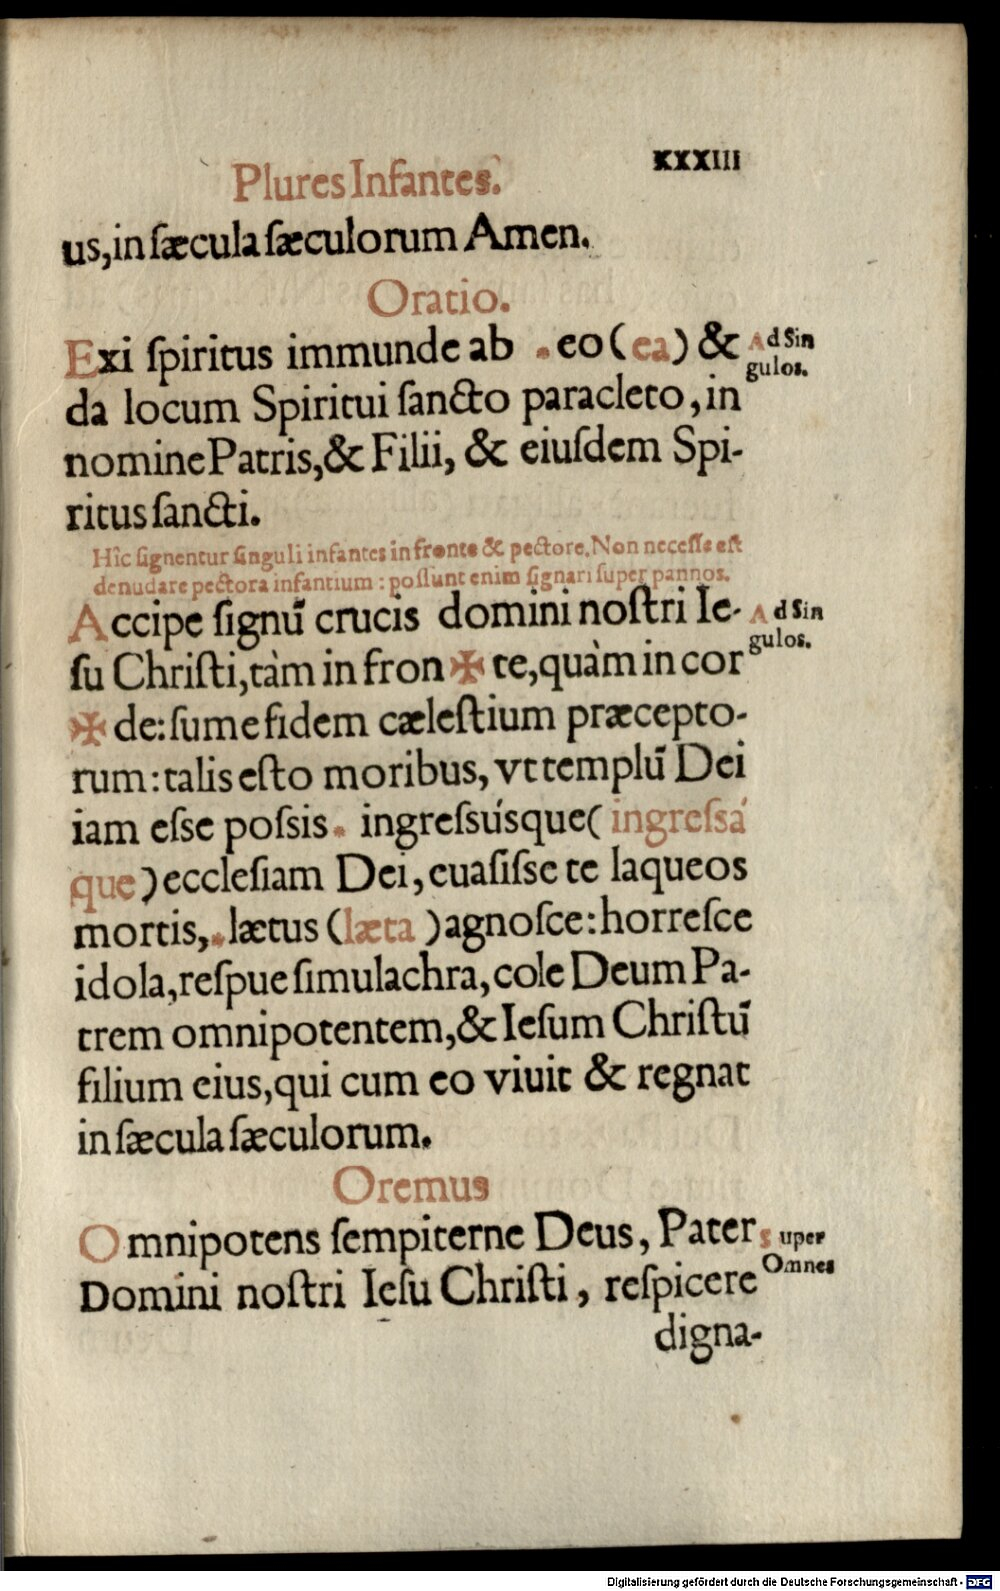 XXXIII
Plures Infantes.
us, in ſæcula ſæculorum Amen.
Oratio.
Exi ſpiritus immunde ab * eo (ea) &
Ad Sin
gulos.
da locum Spiritui ſancto paracleto, in
nomine Patris, & Filii, & eiuſdem Spi-
ritus ſancti.
Hîc ſignentur ſinguli infantes in fronte & pectore. Non neceſſe est
denudare pectora infantium : poſſunt enim ſignari ſuper pannos.
Accipe ſignū crucis domini noſtri Ie-
Ad Sin
gulos.
ſu Chriſti, tàm in fron ✠ te, quàm in cor
✠ de: ſume fidem cæleſtium præcepto-
rum: talis eſto moribus, vt templū Dei
iam eſse poſsis * ingreſsúsque ( ingreſsá
que ) eccleſiam Dei, euaſiſse te laqueos
mortis, * lætus (læta ) agnoſce: horreſce
idola, reſpue ſimulachra, cole Deum Pa-
trem omnipotentem, & Ieſum Chriſtū
filium eius, qui cum eo viuit & regnat
in ſæcula ſæculorum.
Oremus
Omnipotens ſempiterne Deus, Pater
Super
Omnes
Domini noſtri Ieſu Chriſti, reſpicere
digna-
Digitalisierung gefördert durch die Deutsche Forschungsgemeinschaft - DFG